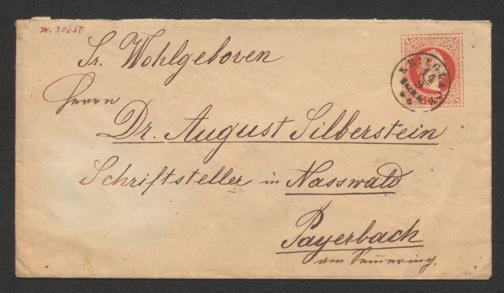 N. 30650
Sr. Wohlgeboren
Herrn
Dr. August Silberstein
Schriftsteller in Nasswald
Payerbach
am Semmering.